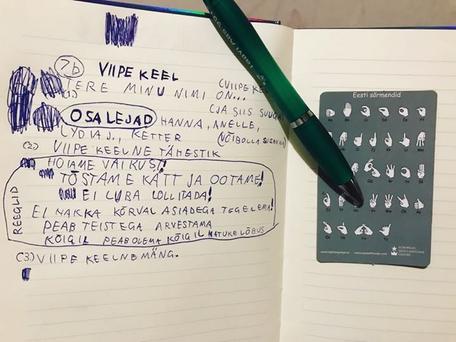 7b
VIIPE KEEL
(VIIPE KE
(1)
TERE MINU NIMI ON...
(JA SIIS SUUGA
OSALEJAD HANNA, ANELLE,
LYDIA J., KETTER
(VÕIBOLLA
(2) VIIPE KEELNE TÄHESTIK
REEGLID
HOIAME VAIKUST!
TÕSTAME KÄTT JA OOTAME!
EI LUBA LOLLITADA!
EI HAKKA KÕRVAL ASJADEGA TEGELEMA!
PEAB TEISTEGA ARVESTAMA
KÕIGIL PEAB OLEMA KÕIGIL NATUKE LÕBUS
(3) VIIPE KEELNE MÄNG.
Eesti sõrmendid